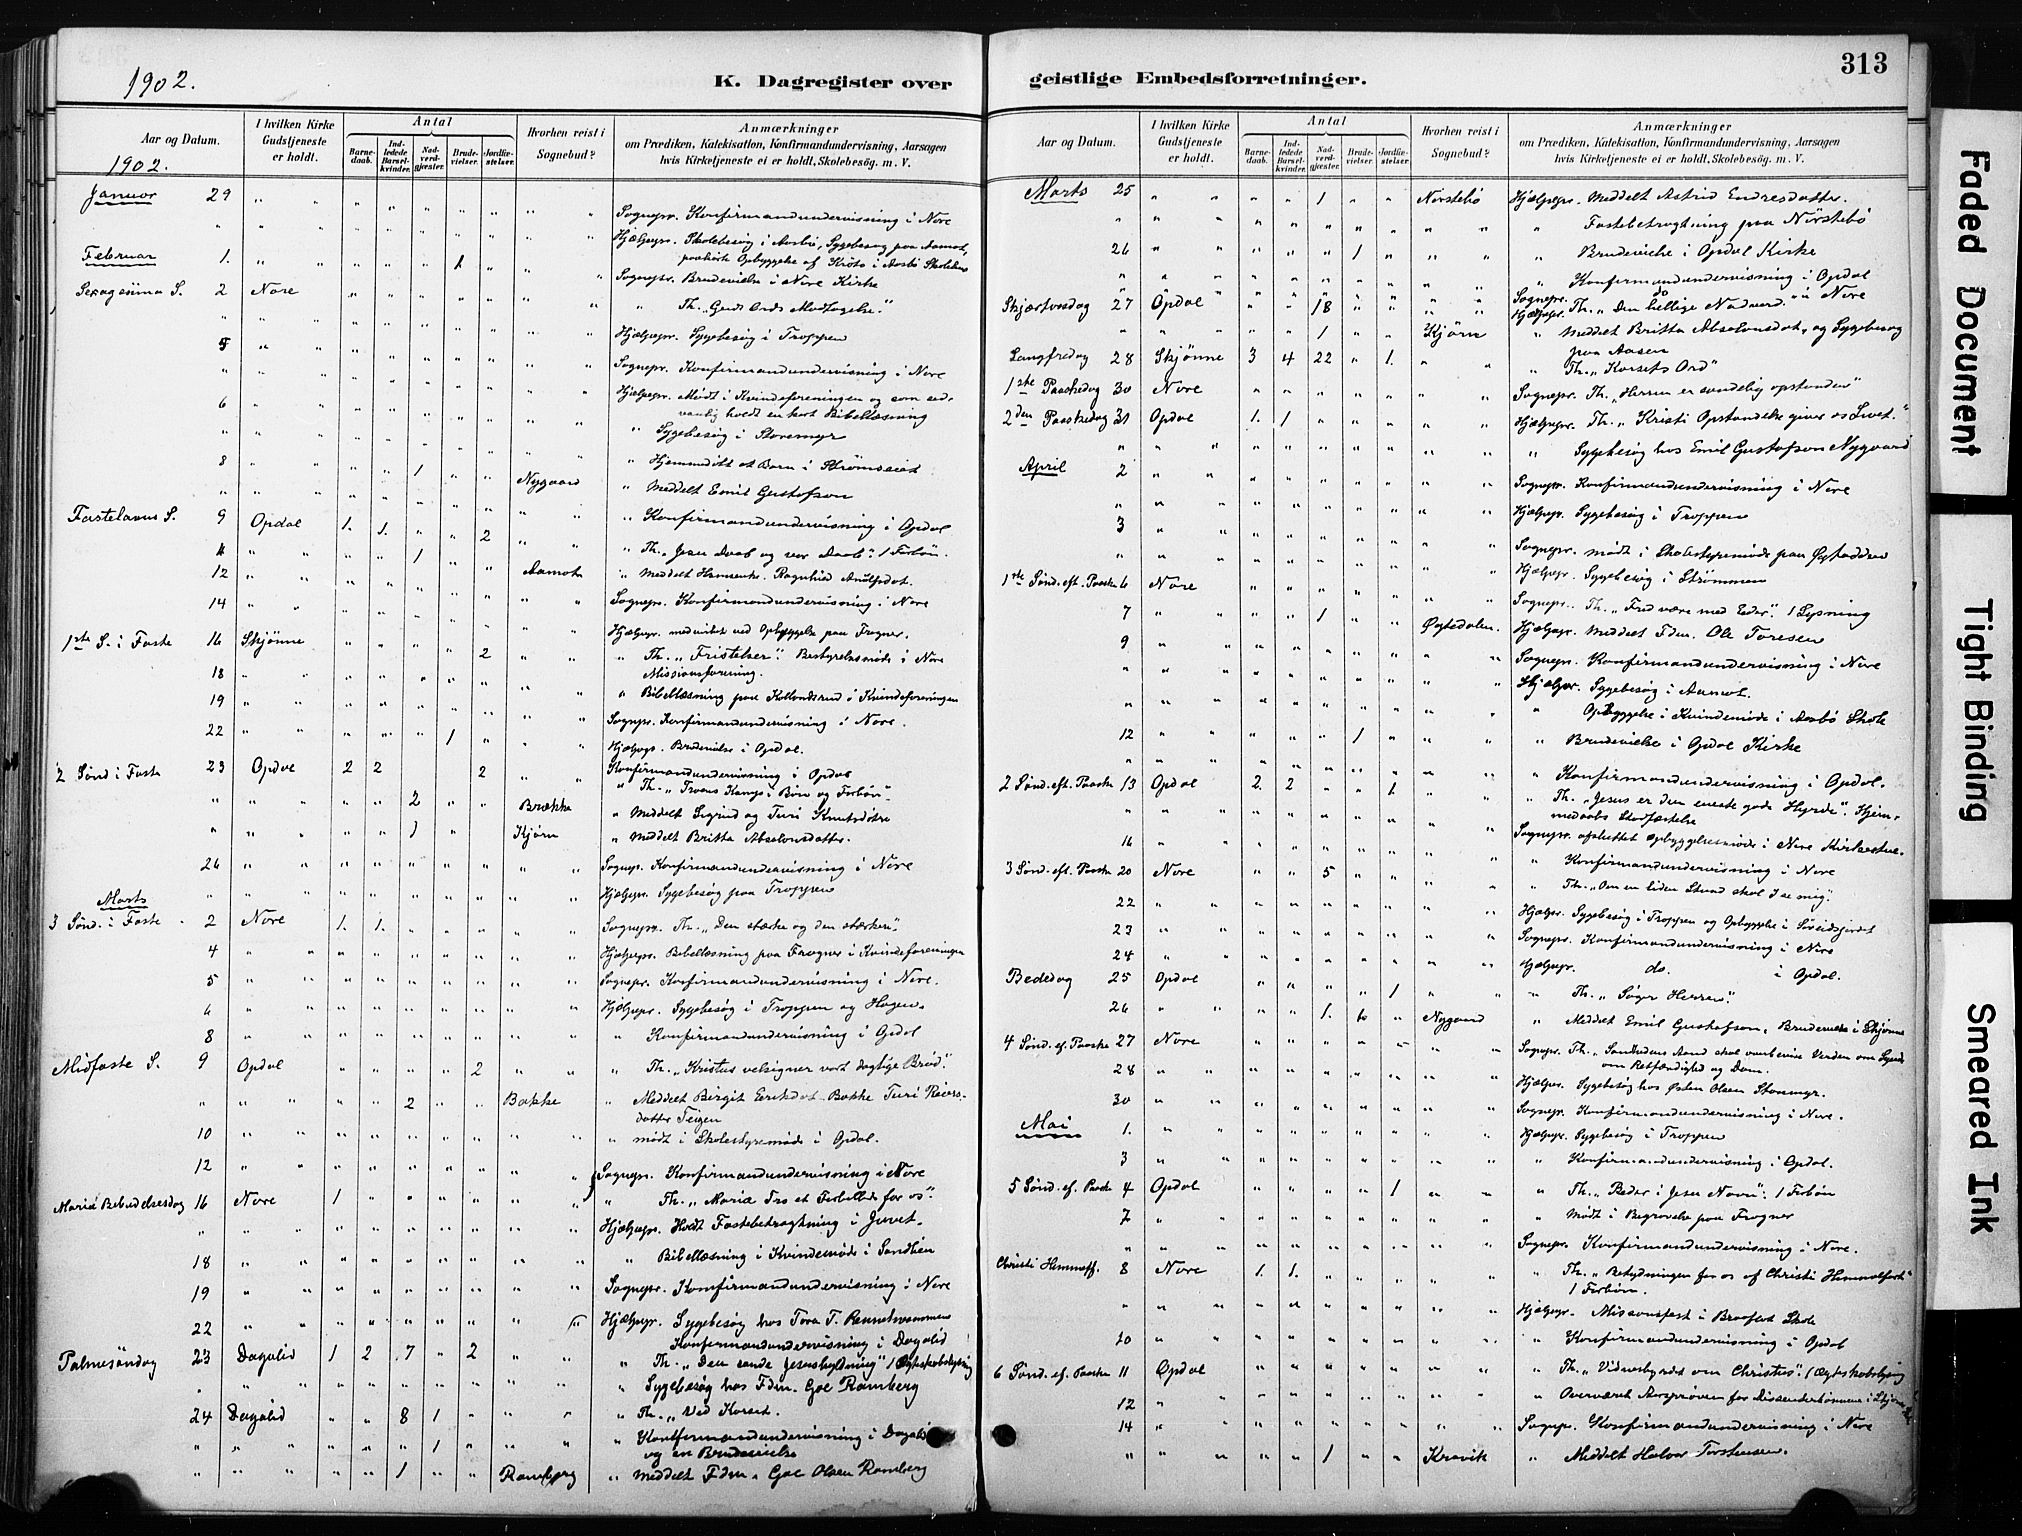 1902.
K. Dagregister over
Aar og Datum.
I hvilken Kirke Gudstjeneste er holdt.
Antal
Barne-daab.
Ind-ledede Barsel-kvinder.
Nad-verd-gjester.
Brude-vielser.
Jordfæ-stelser.
Hvorhen reist i Sognebud?
Anmærkninger
om Prædiken, Katekisation, Konfirmandundervisning, Aarsagen
hvis Kirketjeneste ei er holdt, Skolebesög. m. V.
1902.
Januar 29 " " " " " " " " " Sognepr. Konfirmandundervisning i Nore
" " " " " " " " " Hjælpepr. Skolebesög i Aasbö, Sygebesög paa Aamot,
Februar 1. " " " " " 1 " " " paahörte Opbyggelse af Kröts i Aasbö Skolehus
Sognepr. Brudevielse i Nore Kirke
Sexagesima S. 2 Nore " " " " " " " " Th. "Guds Ords Modtagelse."
Hjælpepr. Sygebesög i Troppen
5 " " " " " " " " " Sognepr. Konfirmandundervisning i Nore
" " " " " " " Hjælpepr. Mödt i Kvindeforeningen og som sed-
6 vanlig holdt en kort Bibellæsning
" " Sygebesög i Storemyr
8 " " " " 1 " " " Hjemmedöbt et Barn i Strömseiet
" " " " " " " Nygaard " Meddelt Emil Gustafson
Fastelavns S. 9 Opdal 1. 1. " " 2 " " " Konfirmandundervisning i Opdal
11 " " " " 1 " " " " " Th. "Jesu Daab og vor Daab". 1 Forbön.
12 " " " " " " " Aamot " Meddelt Ragnhild
14 " " " " " " " " " Sognepr. Konfirmandundervisning i Nore
Hjælpepr. medvirket ved Opbyggelse paa Frogner.
1ste S. i Faste 16 Skjönne " " " " 2 " " " Th. "Fristelser". Bestyrelsesmöde i Nore
18 " " " " " " " Missionsforening.
19 " " " " " " " " " " Bibellæsning paa i Kvindeforeningen
" Sognepr. Konfirmandundervisning i Nore.
22 " " " " " 1 " " " Hjælpepr. Brudevielse i Opdal.
2 Sönd i Faste 23 Opdal 2 2 2 " " Konfirmandundervisning i Opdal
" Th. "Troens Kamp i Bön og Forbön".
" " " " " 2 " " Brække " Meddelt Sigrid og Turi Knutsdötre
" " " " " 1 " Kjörn " Meddelt Britta Absolonsdatter.
26 " " " " " " " " " Sognepr. Konfirmandundervisning i Nore
" " " " " " " " " Hjælpepr. Sygebesög paa Troppen
Marts
3 Sönd. i Faste 2 Nore 1. 1. " " " " " Sognepr. Th. "Den stærke og den stærkere".
4 " " " " " " " " " Hjælpepr. Bibellæsning paa Frogner i Kvindeforeningen
5 " " " " " " " " " Sognepr. Konfirmandundervisning i Nore.
6 " " " " " " " " " Hjælpepr. Sygebesög i Troppen og Hagen.
8 " " " " " " " " " Konfirmandundervisning i Opdal
Midfaste S. 9 Opdal " " " " 2 " " " Th. "Kristus velsigner vort daglige Brød".
" " " " " 2 " " Bakke " Meddelt Birgit Eriksdot. Bakke Turi Reiers-
datter Teigen
10 " " " " " " " " " " mödt i Skolestyremöde i Opdal.
12 " " " " " " " " " Sognepr. Konfirmandundervisning i Nore
Mariæ Bebudelsesdag 16 Nore 1 " " " " " " " Th. "Mariæ Tro et Forbillede for os".
" " " " " " " " " Hjælpepr. Holdt Fastebetragtning i Juvet.
18 " " " " " " " " " Bibellæsning i Kvindemöde i Sandlien
19 " " " " " " " " " Sognepr. Konfirmandundervisning i Nore
22 " " " " " " " " " Hjælpepr. Sygebesög hos Tora T.
Konfirmandundervisning i Dagalid
Palmesöndag 23 Dagalid 1 2 7 " 2 " " " Th. "Den sande Jesushyldning" 1 Ægteskabslysning
" " " " " " " " " " Sygebesög hos Fdm. Goe Ramberg
24 Dagalid " " 8 1 " " " " Th. "Ved Korset.
" " " " " " 1 " " " " Konfirmandundervisning i Dagalid
og en Brudevielse
" " " " " 1 " " Ramberg " Meddelt Fdm. Goe Olsen Ramberg
geistlige Embedsforretninger.
313
Aar og Datum.
I hvilken Kirke Gudstjeneste er holdt.
Antal
Barne-daab.
Ind-ledede Barsel-kvinder.
Nad-verd-gjester.
Brude-vielser.
Jordfæ-stelser.
Hvorhen reist i Sognebud?
Anmærkninger
om Prædiken, Katekisation, Konfirmandundervisning, Aarsagen
hvis Kirketjeneste ei er holdt, Skolebesög. m. V.
Marts 25 " " " " 1 " " Nörstebö Hjælpepr. Meddelt Astrid Endresdatter.
" " " " " " " " " " Fastebetragtning paa Nörstebö
26 " " " " " 1 " " " " Brudevielse i Opdal Kirke
" " " " " " " " " " Konfirmandundervisning i Opdal
Sognepr. do i Nore
Skjærtorsdag 27 Opdal " " 18 " " " " Hjælpepr. Th. "Den hellige Nadverd."
" " " " " 1 " " Kjörn " Meddelt Britta Absolonsdat., og Sygebesög
paa Aasen
Langfredag 28 Skjönne 3 4 22 " 1. " " " Th. "Korsets Ord"
1ste Paaskedag 30 Nore " " " " " " " Sognepr. Th. "Herren er sandelig opstanden"
2den Paaskedag 31 Opdal 1. 1 " " " " " Hjælpepr. Th. "Kristi Opstandelse giver os Livet."
" Sygebesög hos Emil Gustafson Nygaard
April 2 " " " " " " " " " Sognepr. Konfirmandundervisning i Nore
" " " " " " " " " Hjælpepr. Sygebesög i Troppen
3 " " " " " " " " " Sognepr. mödt i Skolestyremöde paa
" " " " " " " " " Hjælpepr. Sygebesög i Strömmen
1ste Sönd. eft. Paaske 6 Nore " " " " " " " Sognepr. Th. "Fred være med Eder". 1 Lysning
7 " " " " 1 " " Ögtedalen Hjælpepr. Meddelt Fdm. Ole Toresen
9 " " " " " " " " " Sognepr. Konfirmandundervisning i Nore
" " " " " " " " " Hjælpepr. Sygebesög i Aamot.
" " " " " " " " " Opbyggelse i Kvindemöde i Aasbö Skole
12 " " " " " 1 " " " " Brudevielse i Opdal Kirke
" " " " " " " " " " Konfirmandundervisning i Opdal.
2 Sönd. eft. Paaske 13 Opdal 2. 2 " " 1. " " " Th. "Jesus er den eneste gode Hyrde". Hjem-
medaabs Stadfæstelse
16 " " " " " " " " " Sognepr. opbyggelsesmöde i Nore
" Konfirmandundervisning i Nore
3 Sönd. eft. Paaske 20 Nore " " 5 " " " " " Th. "Om en liden Stund skal I se mig".
22 " " " " " " " " " Hjælpepr. Sygebesög i Troppen og Opbyggelse i
23 " " " " " " " " " Sognepr. Konfirmandundervisning i Nore
24 " " " " " " " Hjælpepr. do. i Opdal.
Bededag 25 Opdal " " " " 1 " " " Th. "Söger Herren".
26 " " " " 1. " " Nygaard " Meddelt Emil Gustafson, Brudevielse i Skjönne
4 Sönd. ef. Paaske 27 Nore " " " " " " " Sognepr. Th. "Sandhedens Aand skal overbevise Verden om Synd
om Retfærdighed og Dom.
28 " " " " " " " " " Hjælpepr. Sygebesög hos Østen Olsen Storemyr.
30 " " " " " " " " " Sognepr. Konfirmandundervisning i Nore.
Mai 1. " " " " " " " " " Hjælpepr. Sygebesög i Troppen
3 " " " " " " " " " " Konfirmandundervisning i Opdal.
5 Sönd. ef. Paaske 4 Opdal " " " " 1 " " " Th. "Beder i Jesu Navn". 1 Forbön
7 " " " " " " " " " " Mödt i Begravelse paa Frogner
" " " " " " " " " Sognepr. Konfirmandundervisning i Nore.
Christi Himmelf. 8 Nore 1. 1. " " " " " " Th. "Betydningen for os af Christi Himmelfart"
1 Forbön.
" " " " " " " " " Hjælpepr. Missionsfest i Skole
10 " " " " " " " " " " Konfirmandundervisning i Opdal
6 Sönd. ef. Paaske 11 Opdal " " " " " " " " Th. "Vidnesbyrdet om Christus". 1 Ægteskabslysning
12 " " " " " " " " Overværet i Skjönne
14 " " " " " " " " Sognepr. Konfirmandundervisning i Nore
" " " " " 1 " " Kravik " Meddelt Halvor Torstensen.
Faded Document
Tight Binding
Smeared Ink